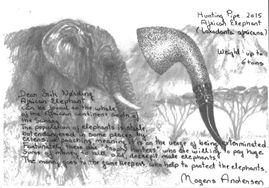 Hunting Pipe 2015
African Elephant
(Loxodonta africana)
Weight: up to
6 tons
Dear Erik Nording
African Elephant
Can be found in the whole
of the African continent south of
the Sahara.
The population of elephants is stable,
but endangered in some places by
extensive poaching, meaning it is on the verge of being exterminated.
Fortunately, there are "trophy hunters" who are willing to pay huge
sums of money to shoot old, decrepit male elephants.
The money goes to the game keepers, who help to protect the elephants.
Mogens Andersen